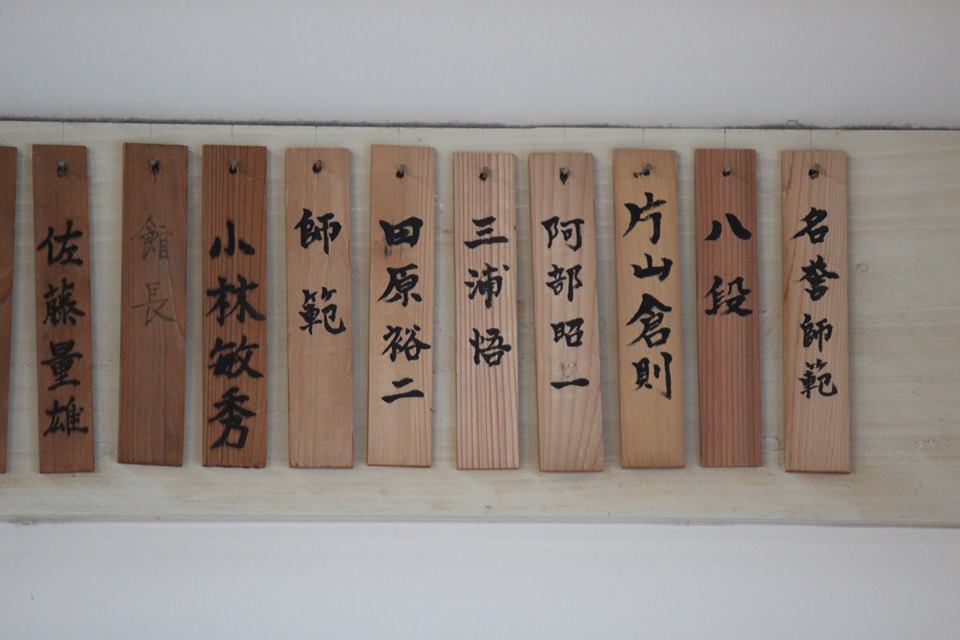 名誉師範
八段
片山倉則
阿部昭一
三浦悟
田原裕二
師範
小林敏秀
館長
佐藤量雄